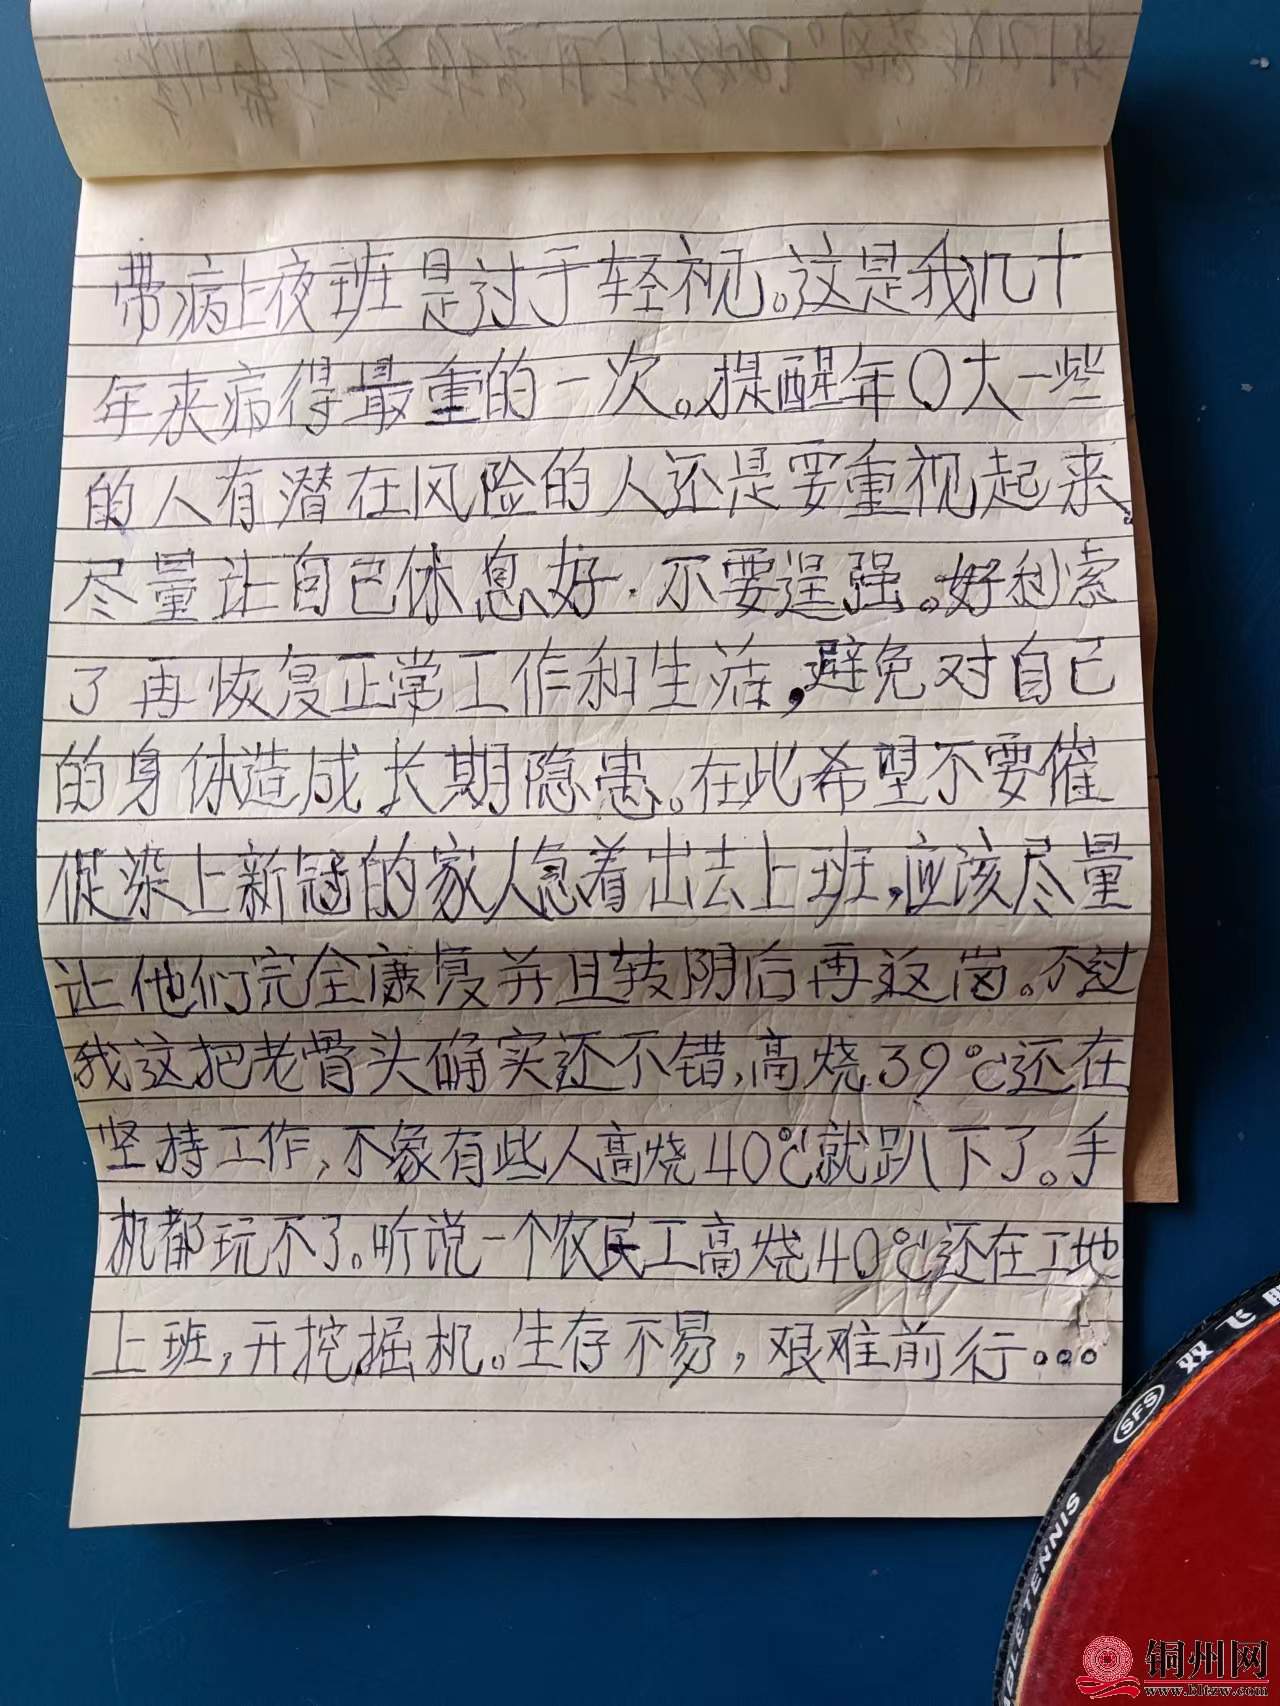 带病上夜班是过于轻视。这是我几十
年来病得最重的一次。提醒年〇大一些
的人有潜在风险的人还是要重视起来。
尽量让自己休息好.不要逞强。好利索
了再恢复正常工作和生活,避免对自己
的身体造成长期隐患。在此希望不要催
促染上新冠的家人急着出去上班,应该尽量
让他们完全康复并且转阴后再返岗。不过
我这把老骨头确实还不错,高烧39℃还在
坚持工作,不象有些人高烧40℃就趴下了。手
机都玩不了。听说一个农民工高烧40℃还在工地
上班,开挖掘机。生存不易,艰难前行...
双飞
SFS
TENNIS
铜州网
www.bltzw.com